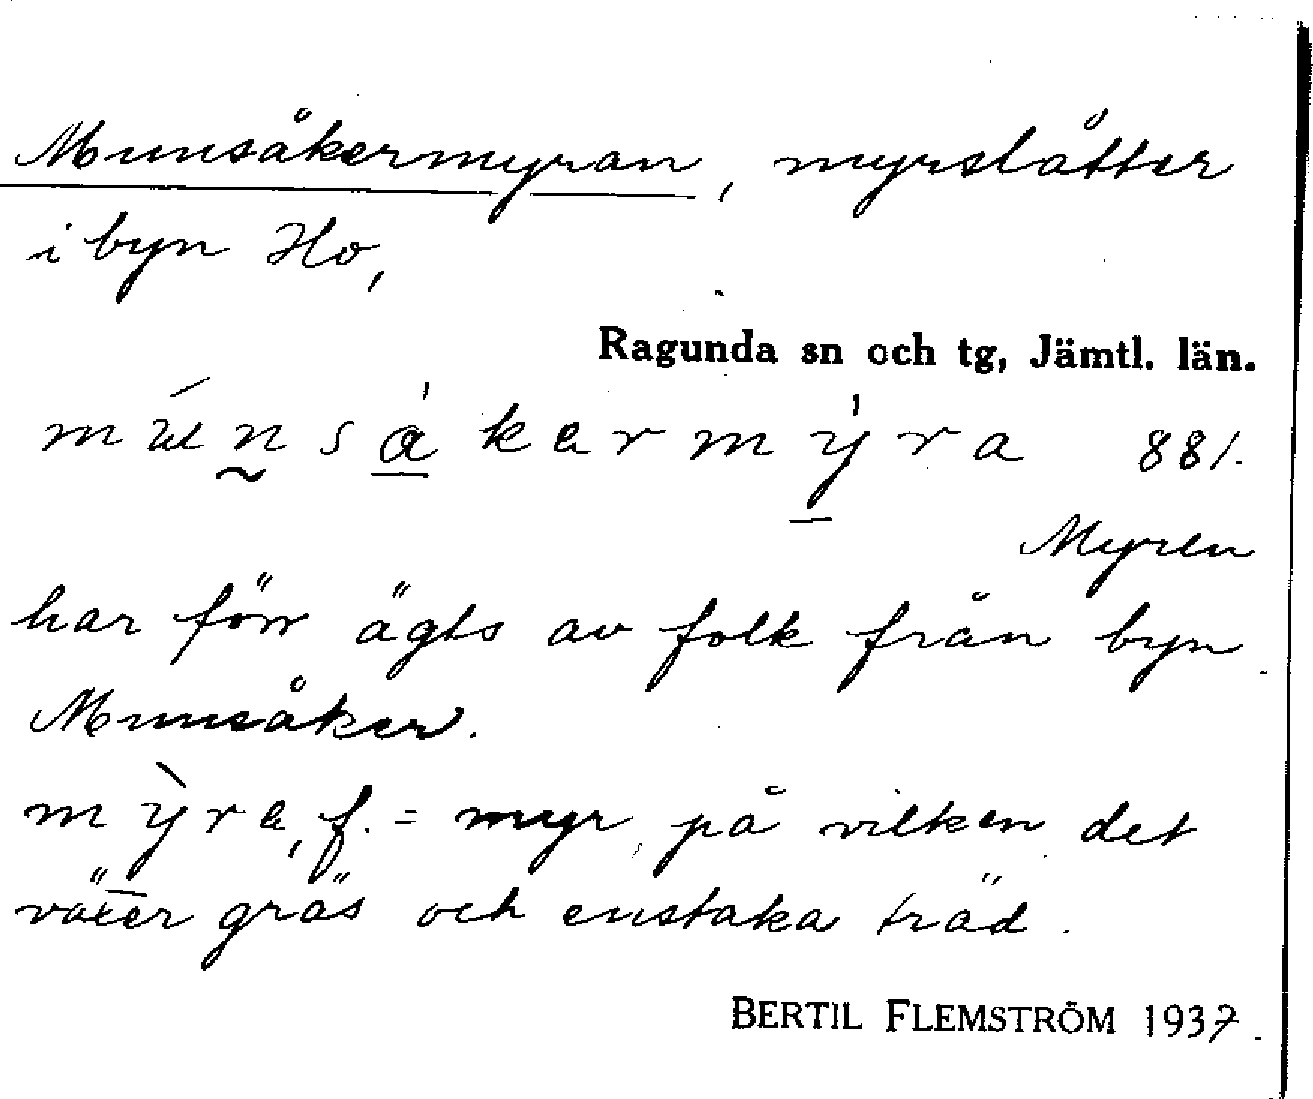 Munsåkermyran, myrslåtter
i byn Ho,
Ragunda sn och tg, Jämtl. län.
881.
Myren
har förr ägts av folk från byn
Munsåker.
f. = myr, på vilken det
växer gräs och enstaka träd.
BERTIL FLEMSTRÖM 1937.